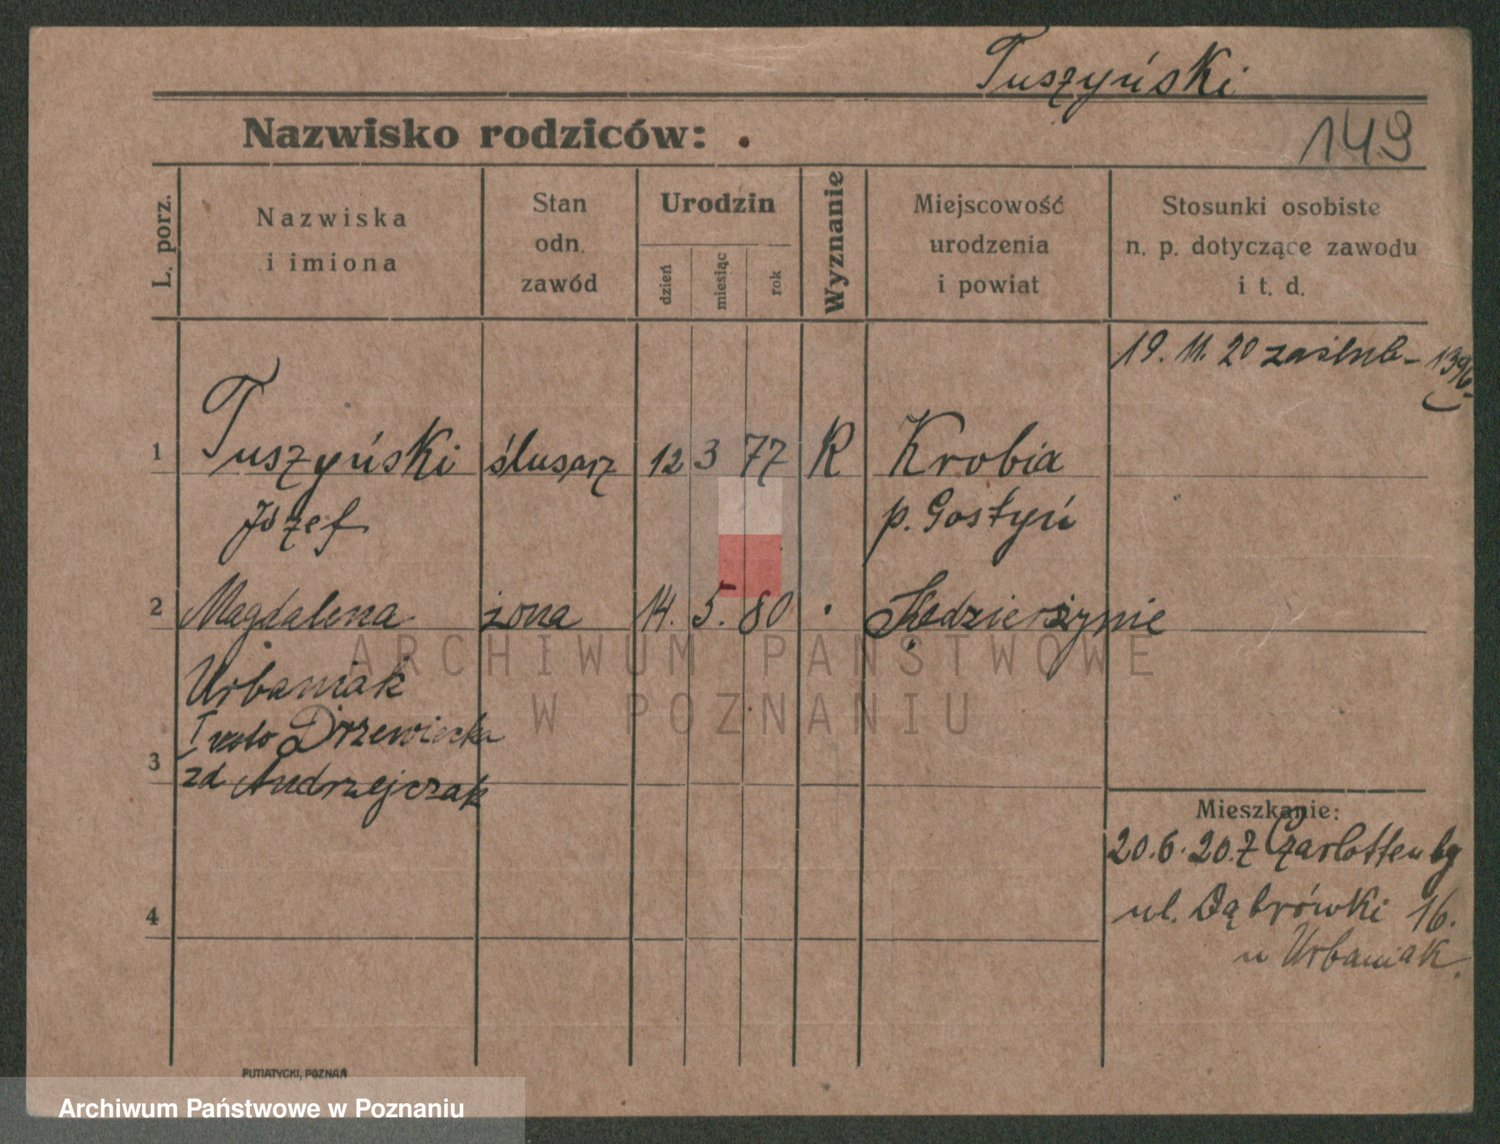 Tuszyński
Nazwisko rodziców:
149
L. porz.
Nazwiska
i imiona
Stan
odn.
zawód
Urodzin
dzień
miesiąc
rok
Wyznanie
Miejscowość
urodzenia
i powiat
Stosunki osobiste
n. p. dotyczące zawodu
i t. d.
19. 11. 20 zaślub-
1396.
1 Tuszyński ślusarz 12 3 77 R Krobia
Józef p. Gostyń
2 Magdalena żona 14. 5. 80
Urbaniak
I voto Drzewiecka
3 zd Andrzejczak
ARCHIWUM PAŃSTWOWE
W POZNANIU
Mieszkanie:
20.6.20. z Czarlottenbg
ul. Dąbrówki 16.
u Urbaniak.
4
PUTIATYCKI, POZNAŃ
Archiwum Państwowe w Poznaniu